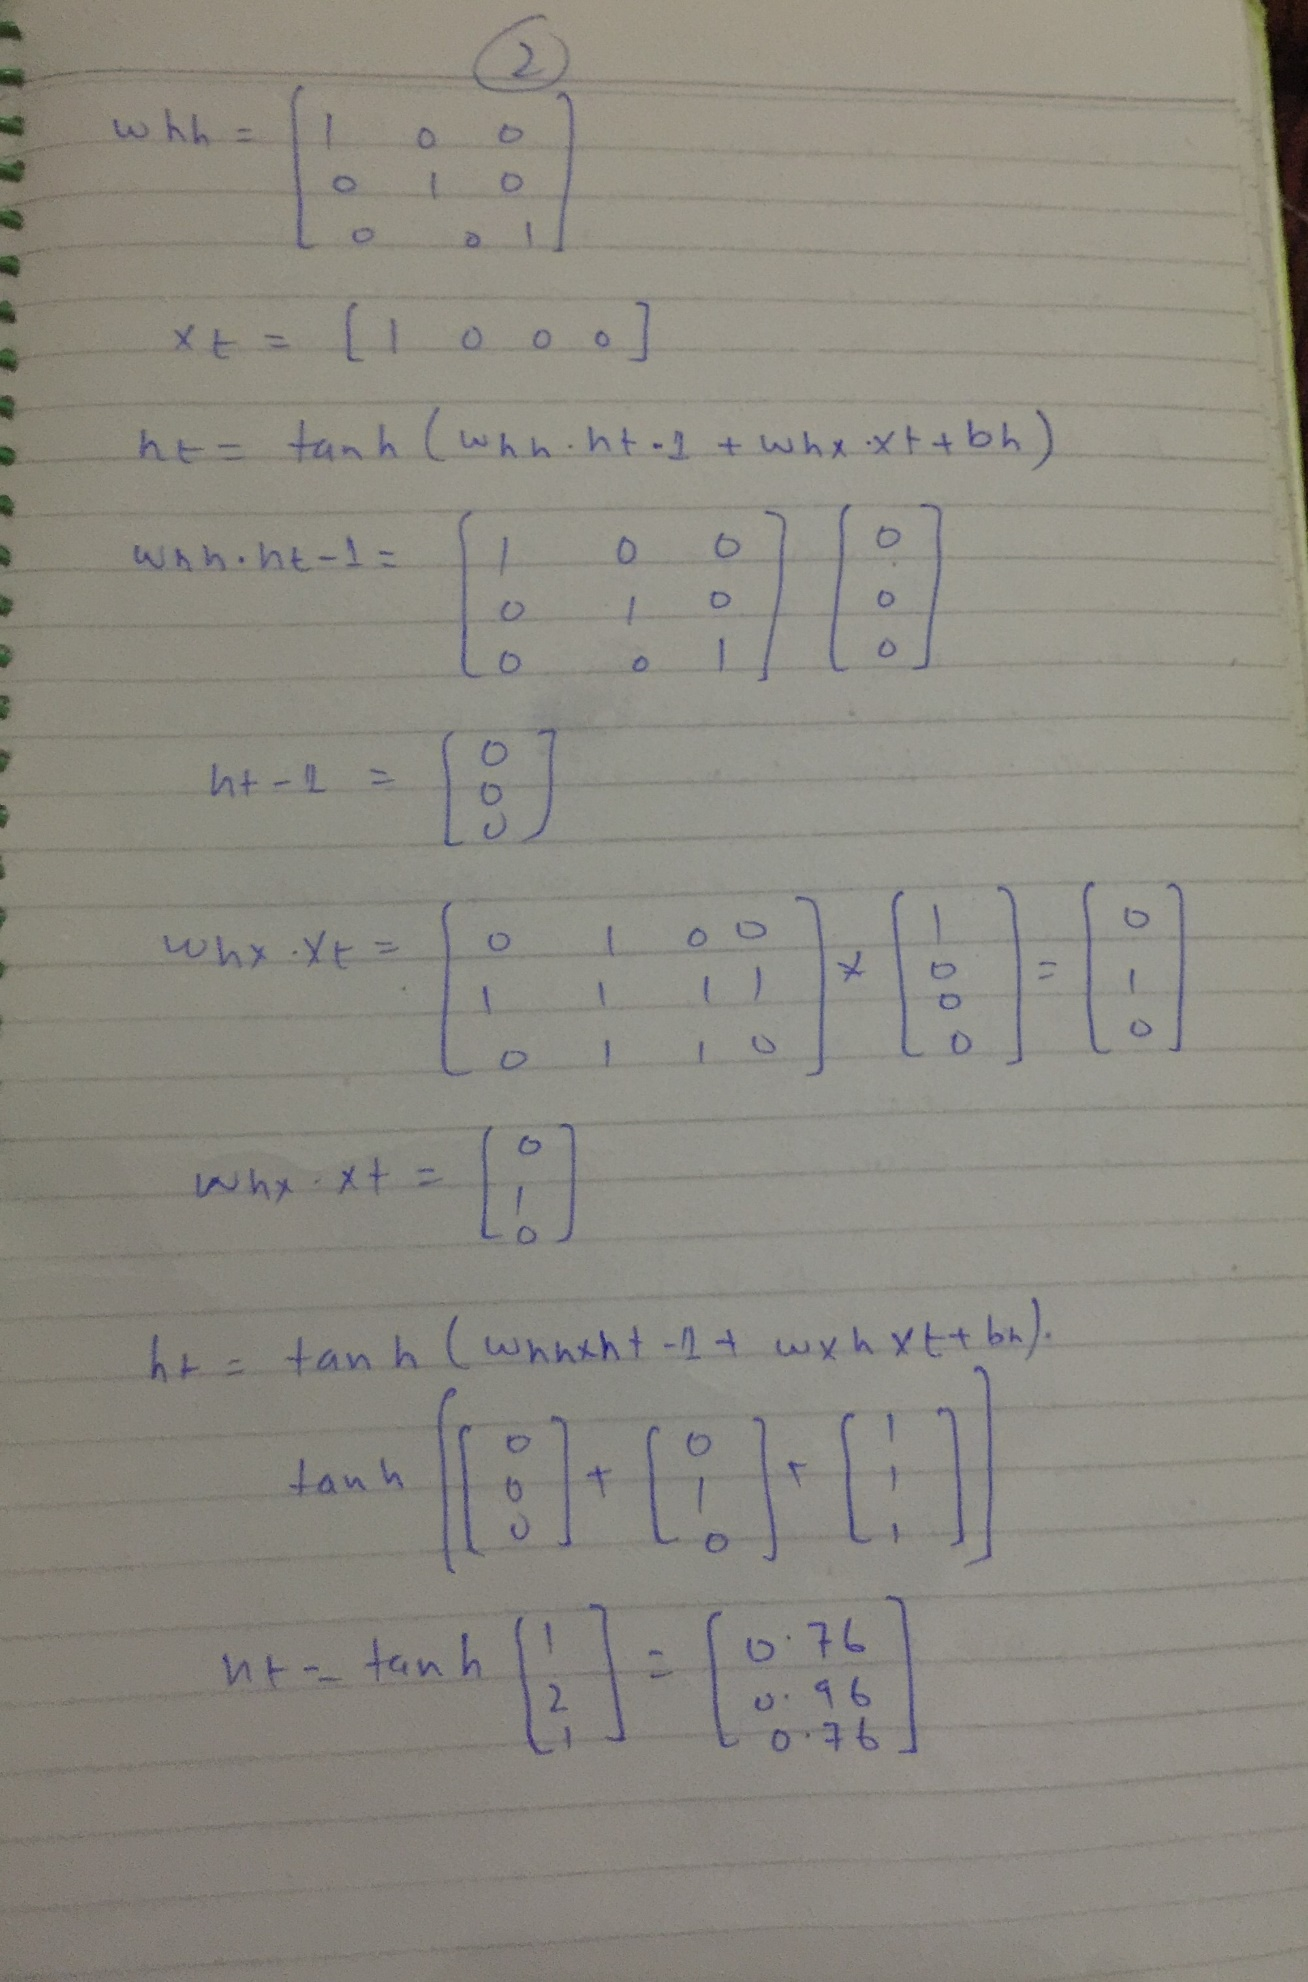 2
whh = [ 1 0 0
0 1 0
0 0 1 ]
xt = [ 1 0 0 0 ]
ht = tanh ( whh . ht-1 + whx . xt + bh )
whh . ht-1 = [ 1 0 0 ] [ 0 ]
[ 0 1 0 ] [ 0 ]
[ 0 0 1 ] [ 0 ]
ht-1 = [ 0
0
0 ]
whx . xt = [ 0 1 0 0 ] x [ 1 ] = [ 0 ]
[ 1 1 1 1 ] [ 0 ] [ 1 ]
[ 0 1 1 0 ] [ 0 0 ] [ 0 ]
whx . xt = [ 0
1
0 ]
ht = tanh ( whhxht-1 + wxh xt + bh ).
tanh [ [ 0 ] + [ 0 ] + [ 1 ] ]
[ 0 ] [ 1 ] [ 1 ]
[ 0 ] [ 0 ] [ 1 ]
ht = tanh [ 1 ] = [ 0.76 ]
[ 2 ] [ 0.96 ]
[ 1 ] [ 0.76 ]